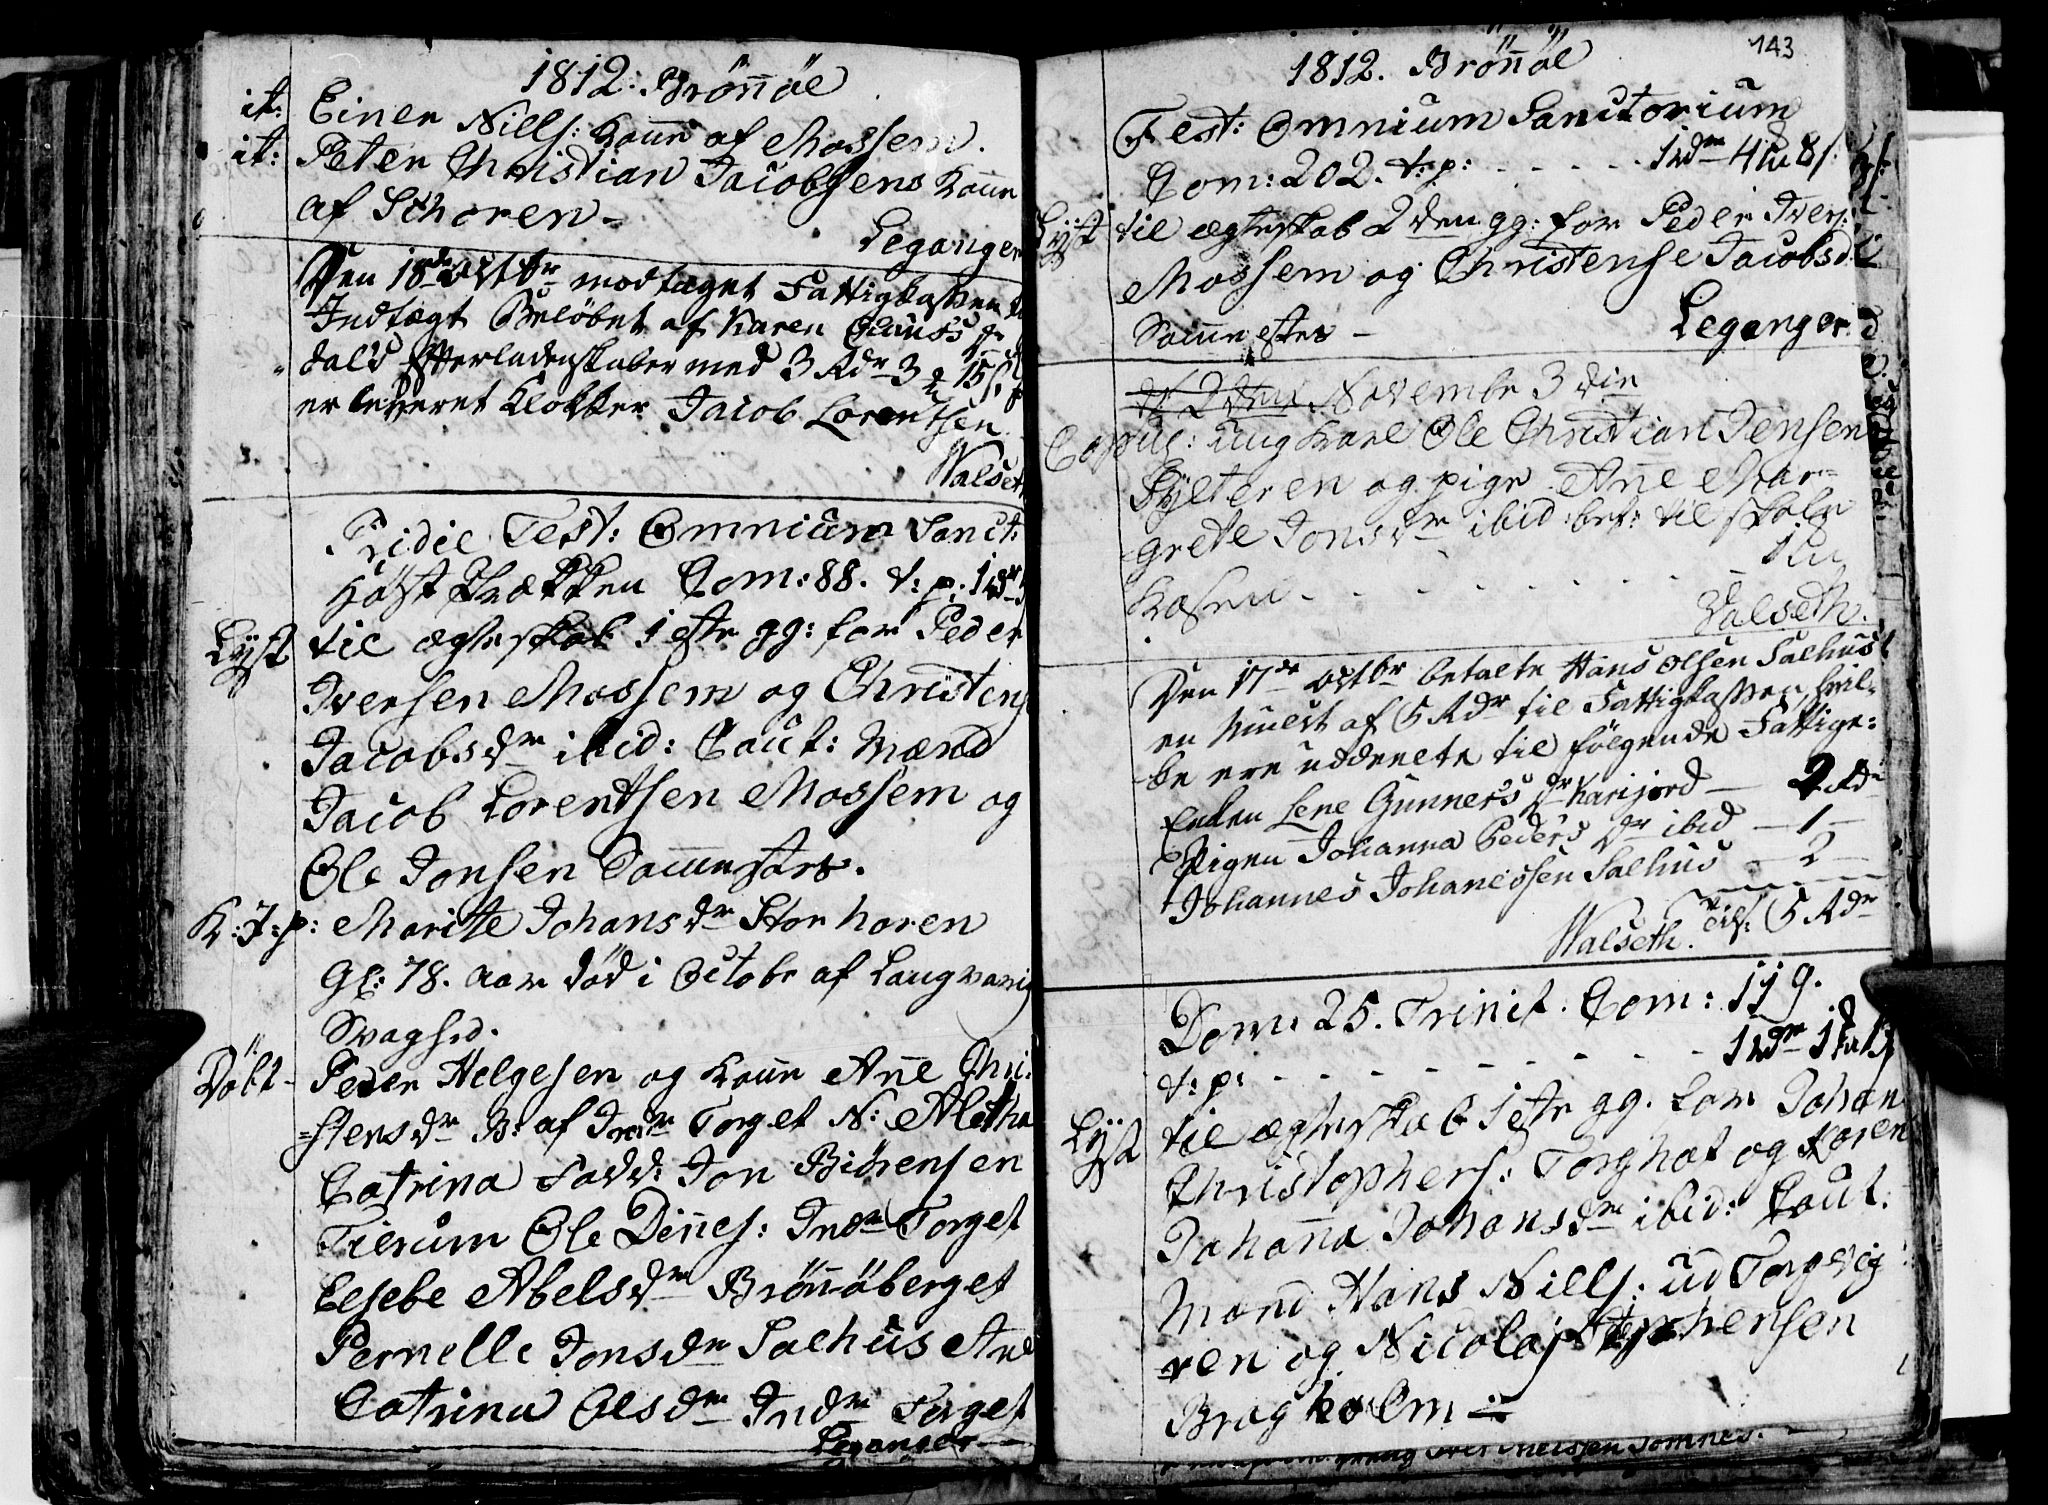 1812: Brönnöe
it: Einer Nills: Kone af Mossem.
it: Peter Christian Jacobsens Kone
af Schoren -
Leganger
Den 18de Octbr modtaget Fattigkassen
Indtægt Beløbet af Karen Clauss dr
dals Efterladenskaber med 3 Rdr 3 15 s.
er leveret Klokker Jacob Lorentsen
Walseth
Pridie Fest: Omnium Sanct:
Com: 88. t: p: 1 rdr
Lyst til ægteskab 1ste gg: for Peder
Iversen Mossem og Christense
Jacobsdr ibid: Caut: Mænd
Jacob Lorentsen Mossem og
Ole Jonsen
K: J: p: Marite Johansdr Storhoren
Gl: 78. Aar død i Octobr af Langvarig
Svaghed.
Döbt - Peder Helgesen og Kone Anne Chri=
=stensdr B: af Indr Torget N: Aletha
Catrina Fadd: Jon Biörensen
Tierum Ole Dinnes: Indr Torget
Elsebe Abelsdr Brönnöberget
Pernelle Jonsdr Salhus And
Catrina Olsdr Indr Torget
Leganger
143
1812. Brönnöe
Fest: Omnium Sanctorium
Com: 202. t: p: - - - - - 1 rdr 4 8 s:
Lyst til ægteskab 2den gg: for Peder Ivers:
Mossem og Christense Jacobsd:
Leganger
Novembr 3die
Copul: ung Karl Ole Christian Jensen
Sylteren og pige Ane Mar=
grete Jonsdr ibid: bet: til skole
Kasen - - - - - -
Valseth.
Den 17de Octbr betalte Hans Olsen Salhus
en Mulct af 5 Rdr til Fattigkassen, hvil-
-ke ere uddeelte til følgende Fattige:
Enken Lene Gunners dr Karijord - 2 Rdr
Pigen Johanna Peders dr ibid - 1 -
Johannes Johannessen Salhus - 2 -
Walseth. 5 Rdr
Dom: 25. Trinit. Com: 119.
t: p: - - - - - - - - 1 rdr
Lyst til ægteskab 1ste gg. for Johan
Christophers: Torghat og Karen
Johanna Johansdr ibid: Caut.
Mænd Hans Nills: ud Torgvig
ren og Nicolaj Stephensen
Bragholm
Nielssen Tomnes.